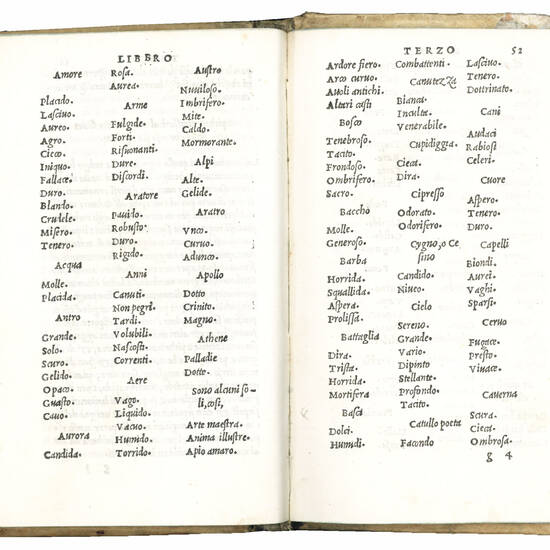 LIBERO
Amore
Placido.
Lasciuo.
Aureo.
Agro.
Cieco.
Iniquo.
Fallace.
Duro.
Blando.
Crudele.
Misero.
Tenero.
Acqua
Molle.
Placida.
Antro
Grande.
Solo.
Scuro.
Gelido.
Opaco.
Guasto.
Cauo.
Aurora
Candida.
Rosa.
Aurea.
Arme
Fulgide.
Forti.
Risuonanti.
Dure.
Discordi.
Aratore
Pauido.
Robusto.
Duro.
Rigido.
Anni
Canuti.
Non pegri.
Tardi.
Volubili.
Nascosti.
Correnti.
Aere
Vago.
Liquido.
Vacuo.
Humido.
Torrido.
Austro
Nuuiloso.
Imbrifero.
Mite.
Caldo.
Mormorante.
Alpi
Alte.
Gelide.
Aratro
Vnco.
Curuo.
Adunco.
Apollo
Dotto
Crinito.
Magno.
Athene
Palladie
Dotte.
Sono alcuni so-
li, così,
Arte maestra.
Anima illustre.
Apio amaro.
TERZO
52
Ardore fiero.
Arco curuo.
Auoli antichi.
Altari casti
Bosco
Tenebroso.
Tacito.
Frondoso.
Ombrifero.
Sacro.
Baccho
Molle.
Generoso.
Barba
Horrida.
Squallida.
Aspera.
Prolissa.
Battaglia
Dira.
Trista.
Horrida.
Mortifera
Basci
Dolci.
Humidi.
Combattenti.
Canutezza
Bianca.
Inculta.
Venerabile.
Cupidiggia
Cieca.
Dira.
Cipresso
Odorato.
Odorifero.
Cygno, o Ce
sino
Candido.
Niueo.
Cielo
Sereno.
Grande.
Vario.
Dipinto
Stellante.
Profondo.
Tacito.
Catullo poeta
Facondo
Lasciuo.
Tenero.
Dottrinato.
Cani
Audaci
Rabiosi
Celeri.
Cuore
Aspero.
Tenero.
Duro.
Capelli
Biondi.
Aurei.
Vaghi.
Sparsi.
Ceruo
Fugace.
Presto.
Viuace.
Cauerna
Scura.
Cieca.
Ombrosa.
g 4